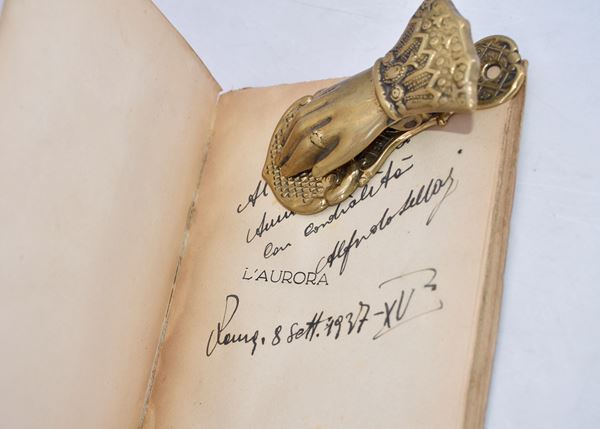 Al
con cordialità
Alfredo
L'AURORA
Roma, 8 Sett. 1937 - XV°